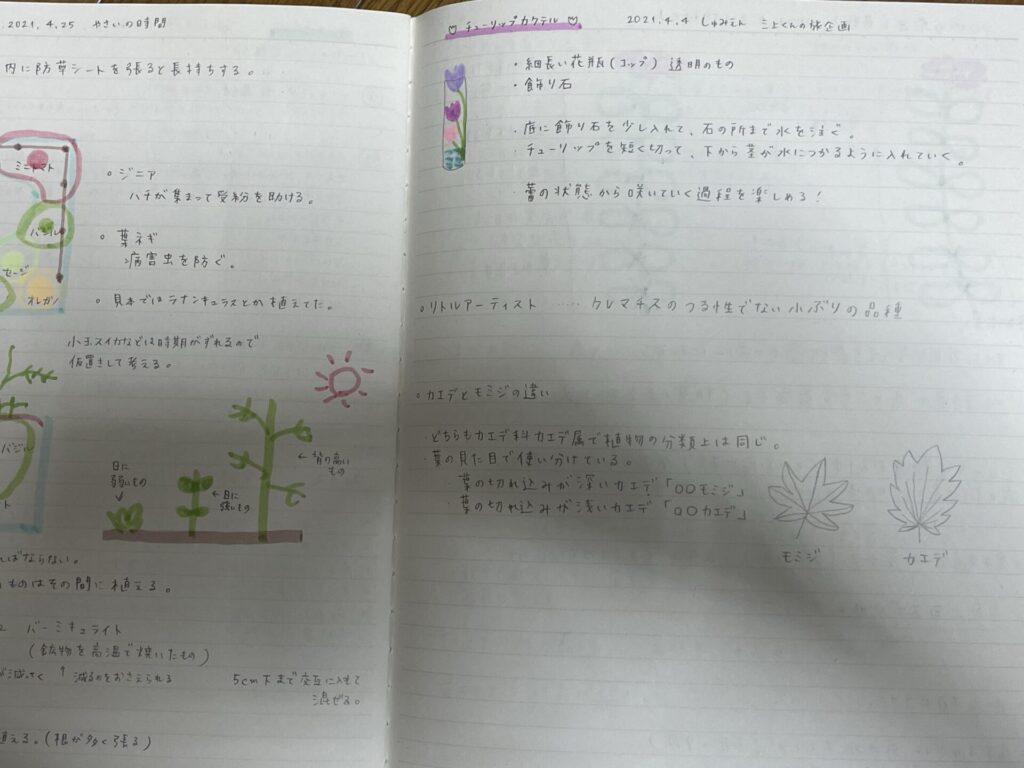 2021.4.25 やさいの時間
内に防草シートを張ると長持ちする。
ミニトマト
バジル
セージ
オレガノ
○ ジニア
ハチが集まって受粉を助ける。
○ 葉ネギ
病害虫を防ぐ。
○ 見本ではラナンキュラスとか植えてた。
小玉スイカなどは時期がずれるので
仮置きして考える。
バジル
ト
日に
弱いもの
←日に
強いもの
←背の高い
もの
ればならない。
ものはその間に植える。
バーミキュライト
(鉱物を高温で焼いたもの)
↑ 減るのをおさえられる
5cm下まで交互に入れて
混ぜる。
植える。(根が多く張る)
♡ チューリップカクテル ♡
2021.4.4 しゅみえん 三上くんの旅企画
・細長い花瓶(コップ) 透明のもの
・飾り石
・底に飾り石を少し入れて、石の所まで水を注ぐ。
・チューリップを短く切って、下から茎が水につかるように入れていく。
・蕾の状態から咲いていく過程を楽しめる!
○リトルアーティスト …… クレマチスのつる性でない小ぶりの品種
○カエデとモミジの違い
・どちらもカエデ科カエデ属で植物の分類上は同じ。
・葉の見た目で使い分けている。
・葉の切れ込みが深いカエデ「○○モミジ」
・葉の切れ込みが浅いカエデ「○○カエデ」
モミジ
カエデ